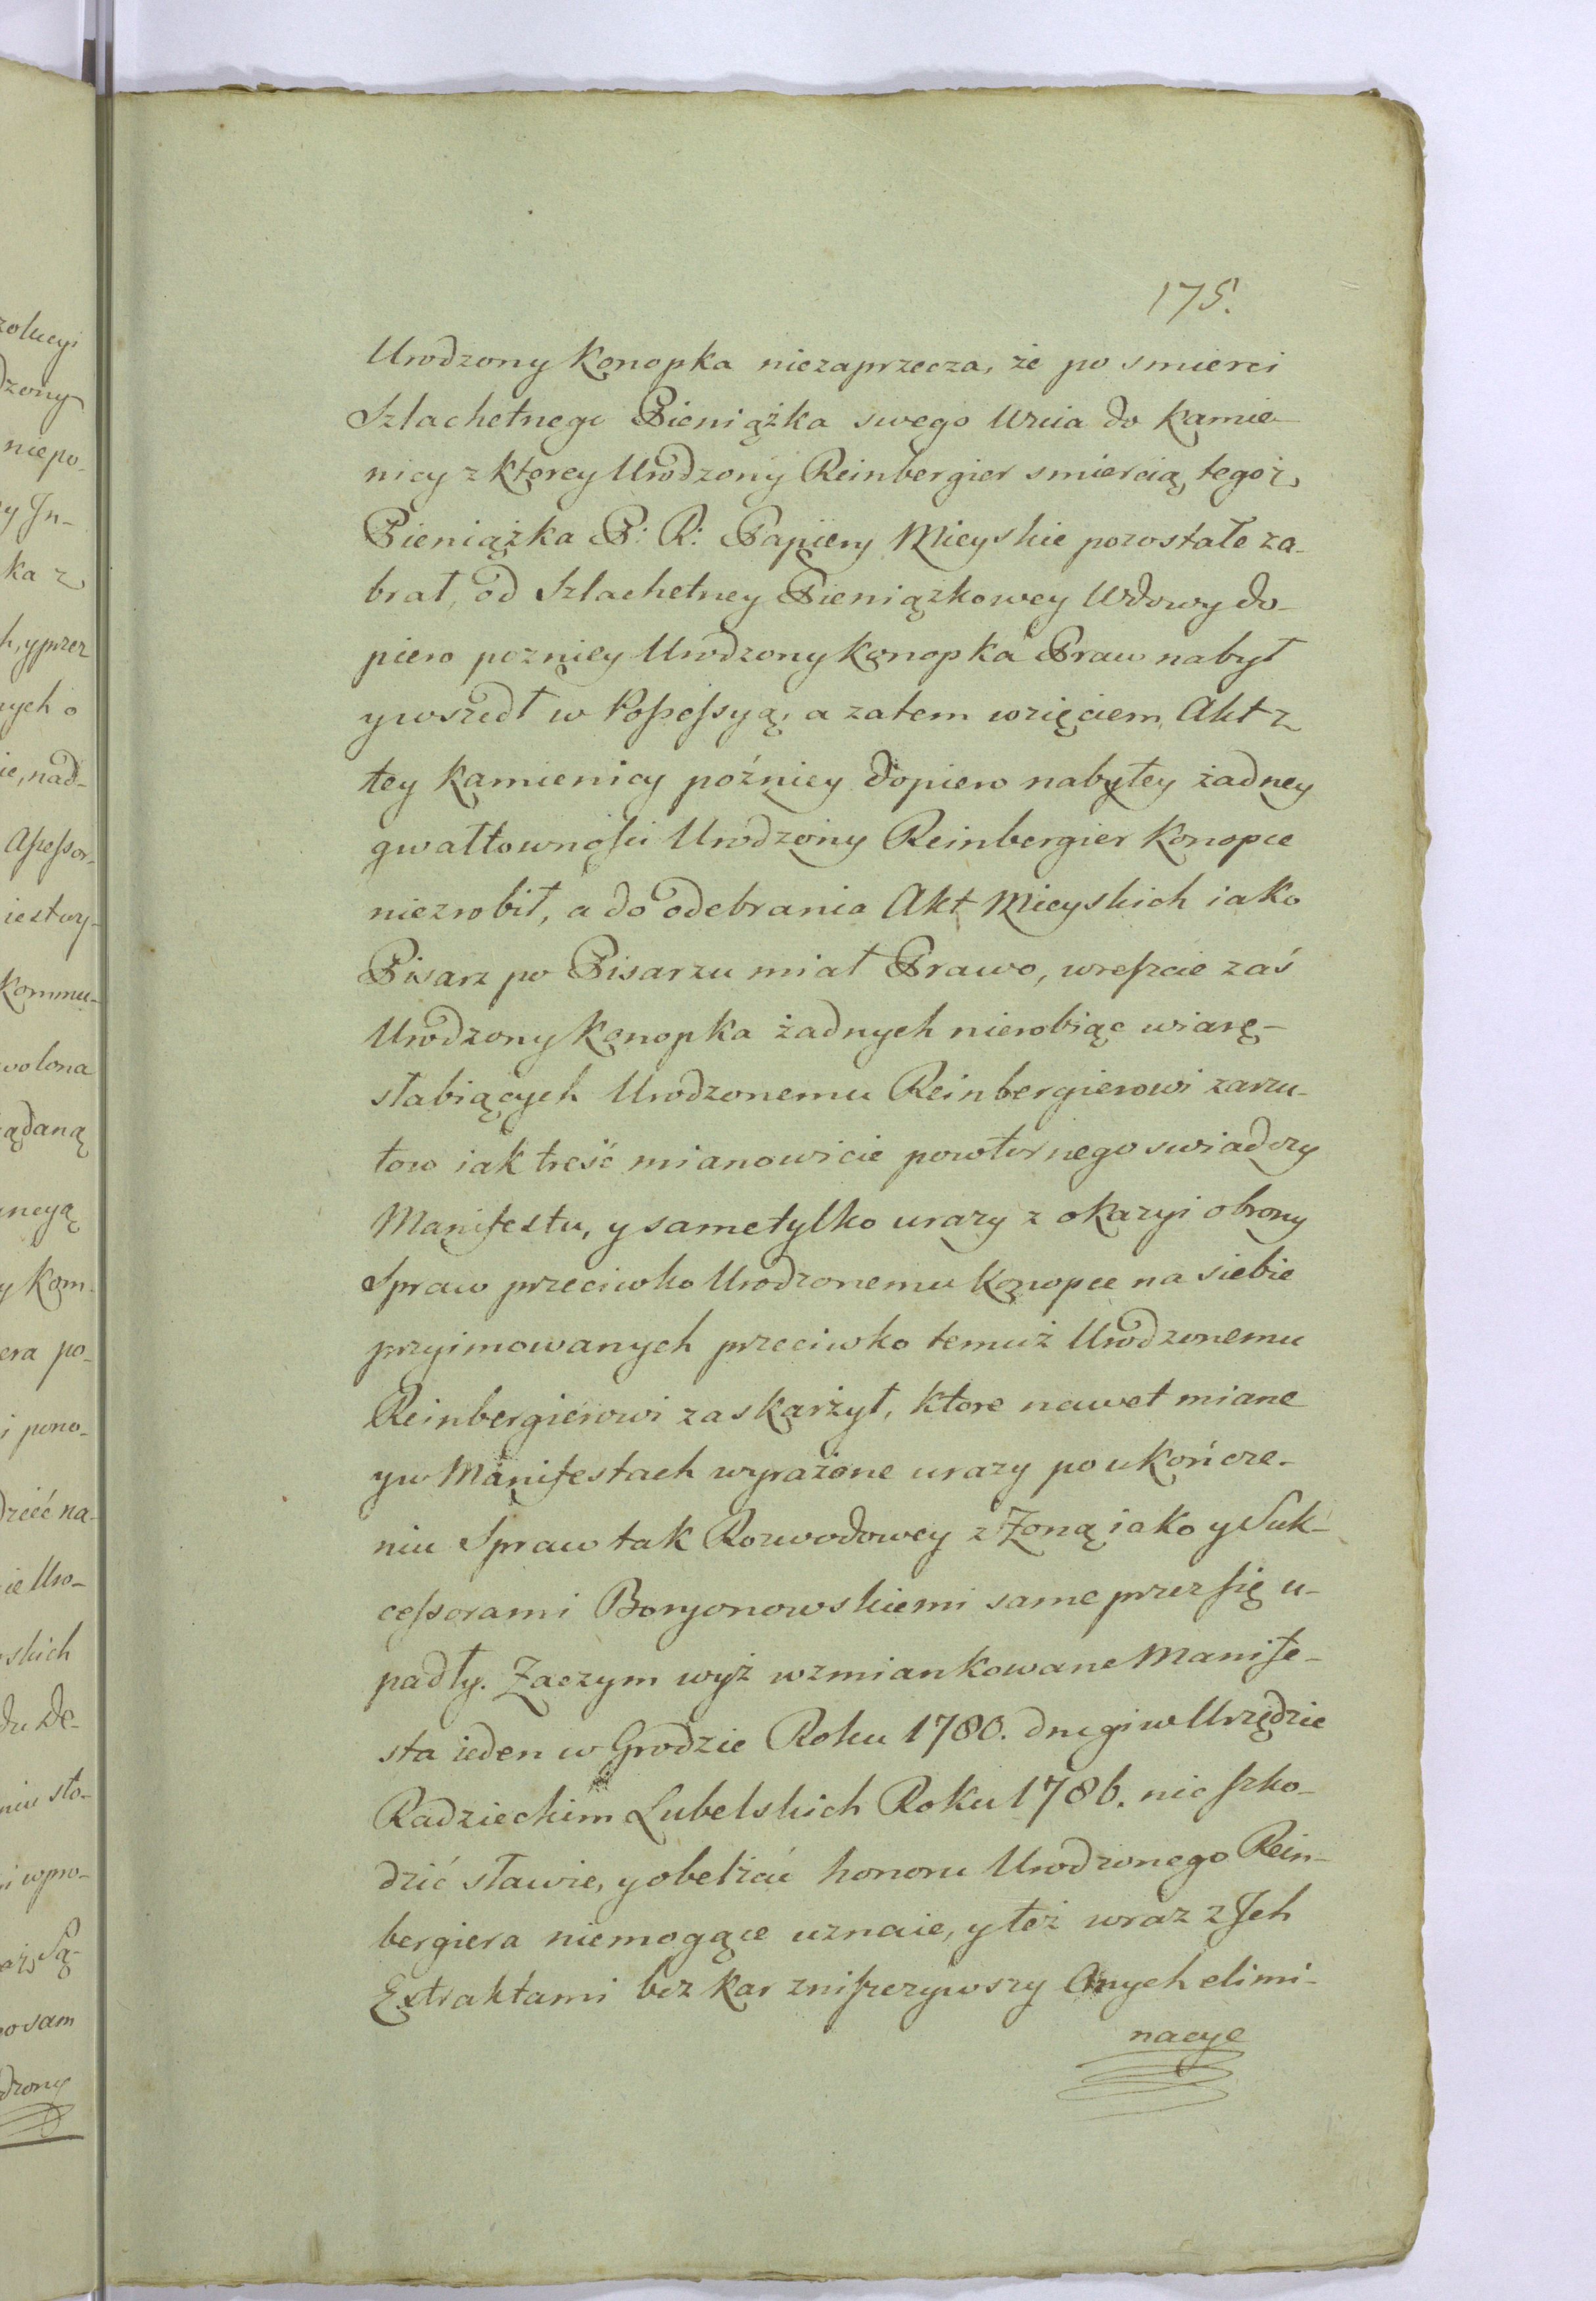 zolucyi
dzony
niepo-
y Jn-
ka z
h, y przez
nych o
ie, nad-
Aſeſsor-
iest wy-
Kommu-
wolona
ządaną
ancyą
y Kom-
era po-
i pono-
dzieć na-
ie Uro-
skich
du De-
niu sto-
i wpro-
Są-
o sam
dzony
175.
Urodzony Konopka niezaprzecza, że po smierci
Szlachetnego Pieniążka swego Uścia do Kamie-
nicy z ktorey Urodzony Reinbergier smiercią tegoż,
Pieniążka P: R: Papiery Mieyskie pozostałe za-
brał, od Szlachetney Pieniązkowey Wdowy do-
piero poznięy Urodzony Konopka Praw nabył
y wszedł w Poſseſsyą, a zatem wzięciem Akt z
tey Kamienicy poźnięy dopiero nabytey żadney
gwałtownoſci Urodzony Reinbergier Konopce
niezrobił, a do odebrania Akt Mieyskich iako
Pisarz po Pisarzu miał Prawo, wreſzcie zaś
Urodzony Konopka żadnych nierobiąc wiarę-
słabiących Urodzonemu Reinbergierowi zarzu-
tow iak treść mianowicie powtornego swiadczy
Manifestu, y same tylko urazy z okazyi obrony
Spraw przeciwko Urodzonemu Konopce na siebie
przyimowanych przeciwko temuż Urodzonemu
Reinbergierowi zaskarżył, ktore nawet miane
y w Manifestach wyrażone urazy po ukończe-
niu Spraw tak Rozwodowey z Żoną iako y Suk-
ceſsorami Boryonowskiemi same przez ſię u-
padły. Zaczym wyż wzmiankowane Manife-
sta ieden w Grodzie Roku 1780. drugi w Urzędzie
Radzieckim Lubelskich Roku 1786. nic ſzko-
dzić sławie, y obelżać honoru Urodzonego Rein-
bergiera niemogące uznaie, y też wraz z Jch
Extraktami bez kar zniſzczywszy Onych elimi-
nacye